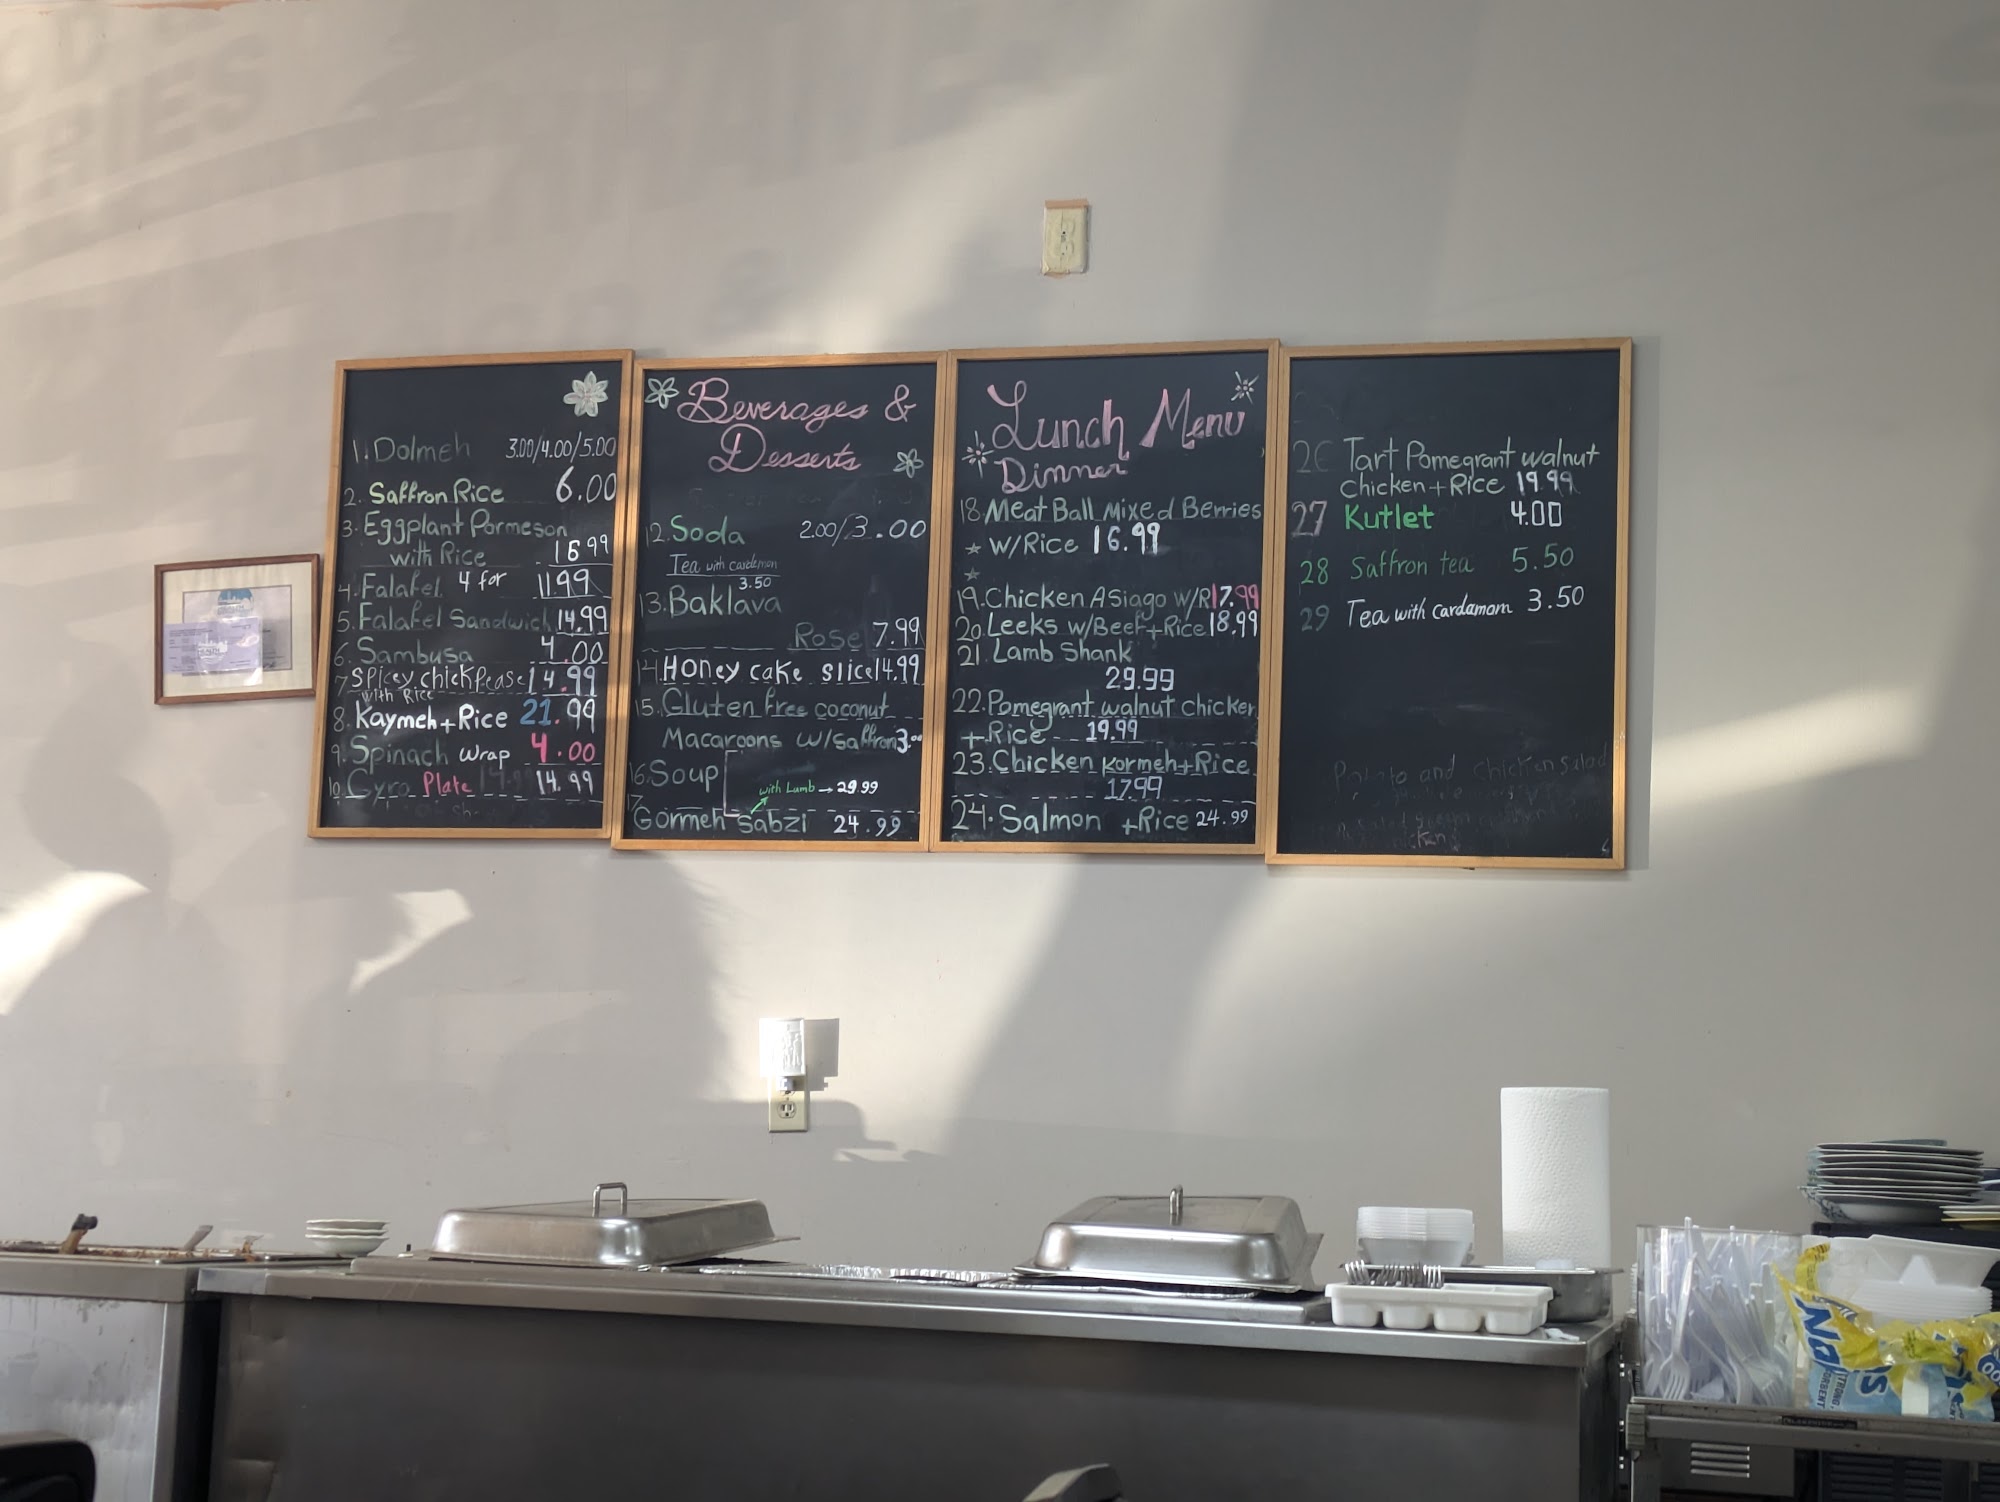 1. Dolmeh 3.00/4.00/5.00
2. Saffron Rice 6.00
3. Eggplant Parmeson
with Rice 16.99
4. Falafel 4 for 11.99
5. Falafel Sandwich 14.99
6. Sambusa 4.00
7 Spicy chickpease 14.99
with Rice
8. Kaymeh + Rice 21.99
9. Spinach wrap 4.00
10. Gyro Plate 14.99
Beverages &
Desserts
12. Soda 2.00/3.00
Tea with cardemon
3.50
13. Baklava
Rose 7.99
14. Honey cake slice 14.99
15. Gluten free coconut
Macaroons w/saffron 3.00
16. Soup
with Lamb → 29.99
17.
Gormeh Sabzi 24.99
Lunch Menu
Dinner
18. Meat Ball Mixed Berries
W/Rice 16.99
19. Chicken ASiago W/R 17.99
20. Leeks w/Beef + Rice 18.99
21. Lamb Shank
29.99
22. Pomegrant walnut chicken
+ Rice 19.99
23. Chicken Kormeh + Rice
17.99
24. Salmon + Rice 24.99
26 Tart Pomegrant walnut
Chicken + Rice 19.99
27 Kutlet 4.00
28 Saffron tea 5.50
29 Tea with cardamom 3.50